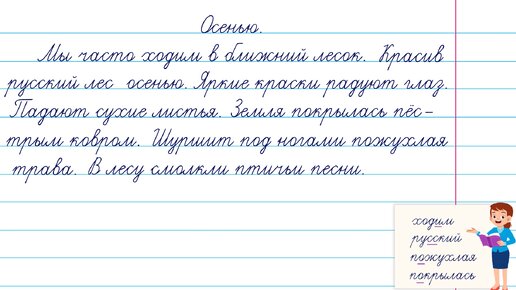 Осенью.
Мы часто ходим в ближний лесок. Красив
русский лес осенью. Яркие краски радуют глаз.
Падают сухие листья. Земля покрылась пёс-
трым ковром. Шуршит под ногами пожухлая
трава. В лесу смолкли птичьи песни.
ходим
русский
пожухлая
покрылась